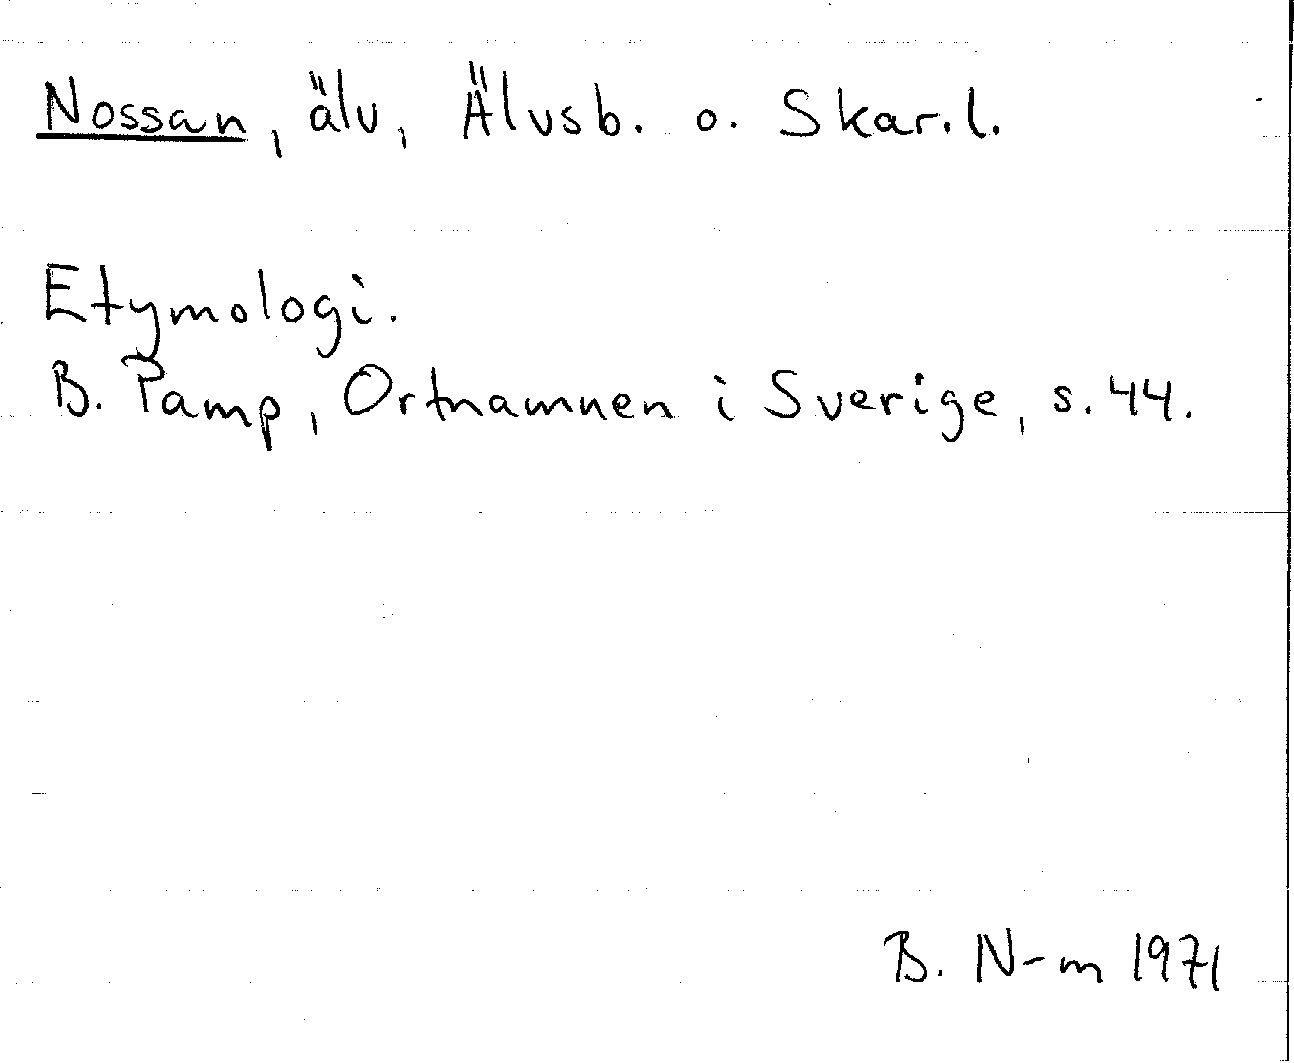 Nossan, älv, Älvsb. o. Skar.l.
Etymologi.
B. Pamp, Ortnamnen i Sverige, s. 44.
B. N-m 1971